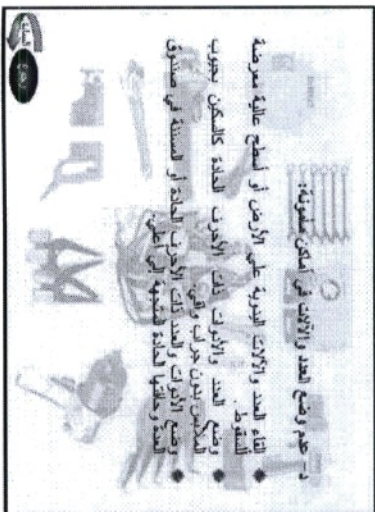 د- عدم وضع العدد والآلات في أماكن مأمونة:
القاء العدد والآلات اليدوية على الأرض أو أسطح عالية معرضة
للسقوط.
وضع العدد والأدوات ذات الأحرف الحادة كالسكين بجيوب
الملابس بدون جراب واقي.
وضع الأدوات والعدد ذات الأحرف الحادة أو المسننة في صندوق
العدة وحافتها الحادة متجهة إلى أعلى.